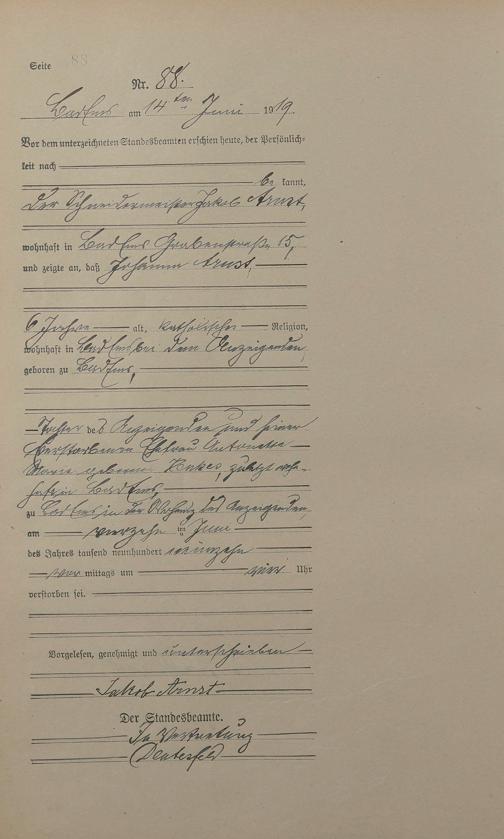 Seite 88
Nr. 88.
Bad Ems am 14ten Juni 1919.
Vor dem unterzeichneten Standesbeamten erschien heute, der Persönlich-
keit nach
be kannt,
der Schneidermeister Jakob Arnst,
wohnhaft in Bad Ems Grabenstraße 15,
und zeigte an, daß Johanna Arnst,
6 Jahre alt, katholischer Religion,
wohnhaft in Bad Ems bei dem Anzeigenden,
geboren zu Bad Ems,
Tochter des Anzeigenden und seiner
verstorbenen Ehefrau Antonette
Maria geborene zuletzt wohn-
haft in Bad Ems,
zu Bad Ems, in der Wohnung des Anzeigenden,
am vierzehn ten Juni
des Jahres tausend neunhundert neunzehn
vor mittags um vier Uhr
verstorben sei.
Vorgelesen, genehmigt und unterschrieben
Jakob Arnst
Der Standesbeamte.
In Vertretung